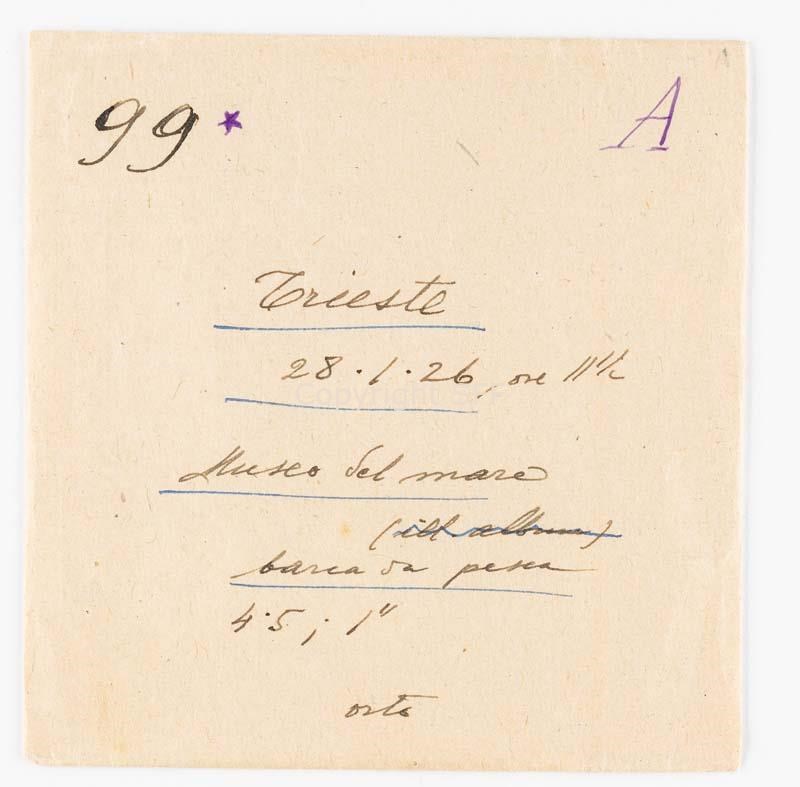 99* A
Trieste
28·1·26, ore 11½
Museo del mare
(ill album)
barca da pesca
4·5; 1"
orto